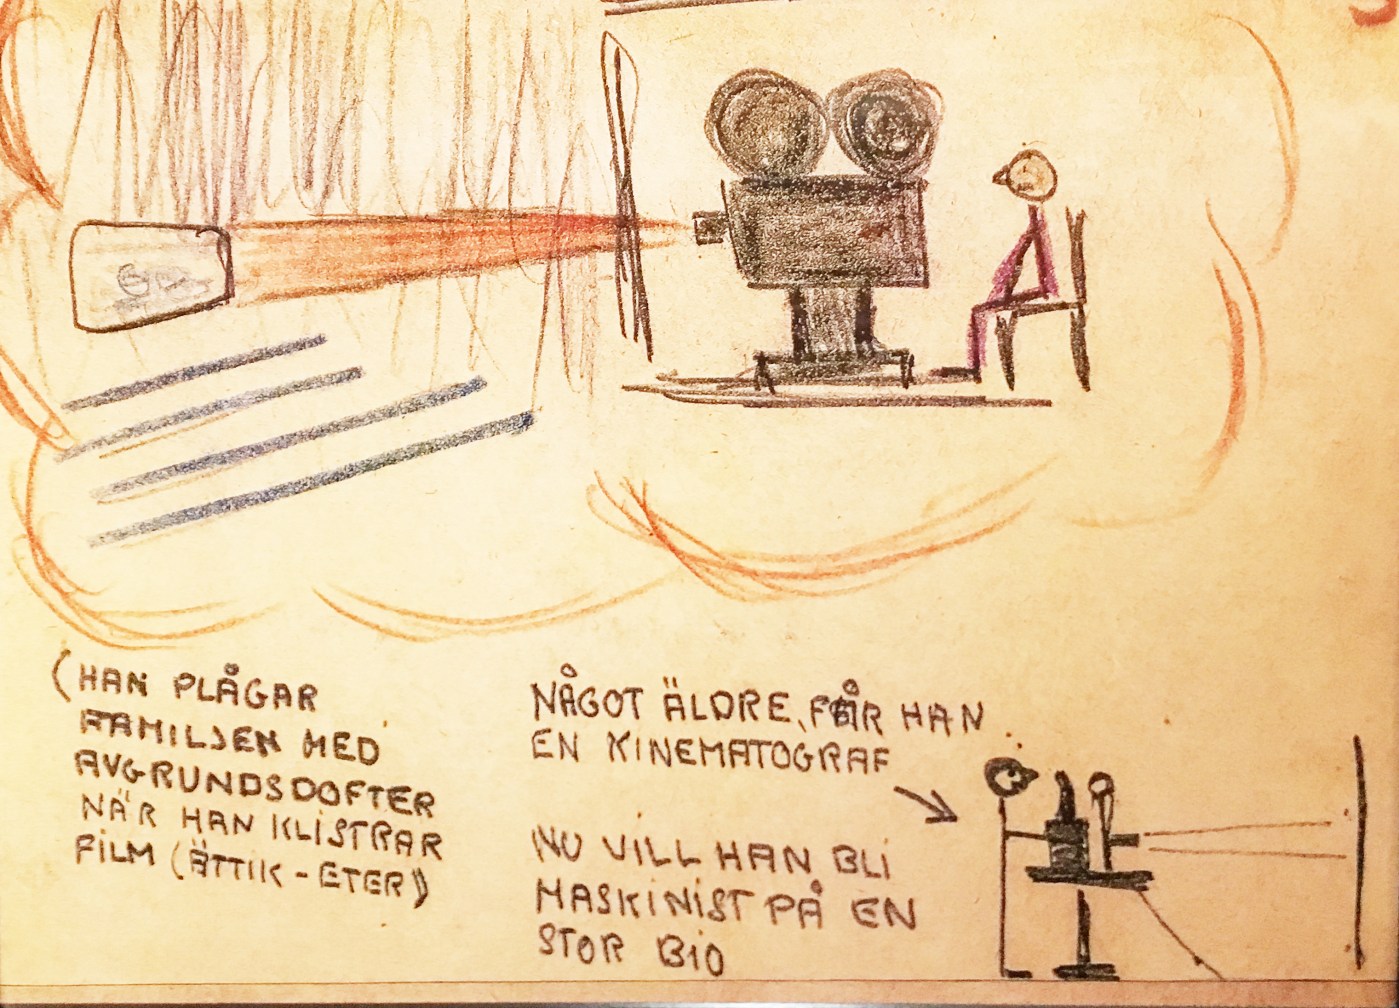 (HAN PLÅGAR
FAMILJEN MED
AVGRUNDSDOFTER
NÄR HAN KLISTRAR
FILM (ÄTTIK-ETER))
NÅGOT ÄLDRE, FÅR HAN
EN KINEMATOGRAF
NU VILL HAN BLI
MASKINIST PÅ EN
STOR BIO